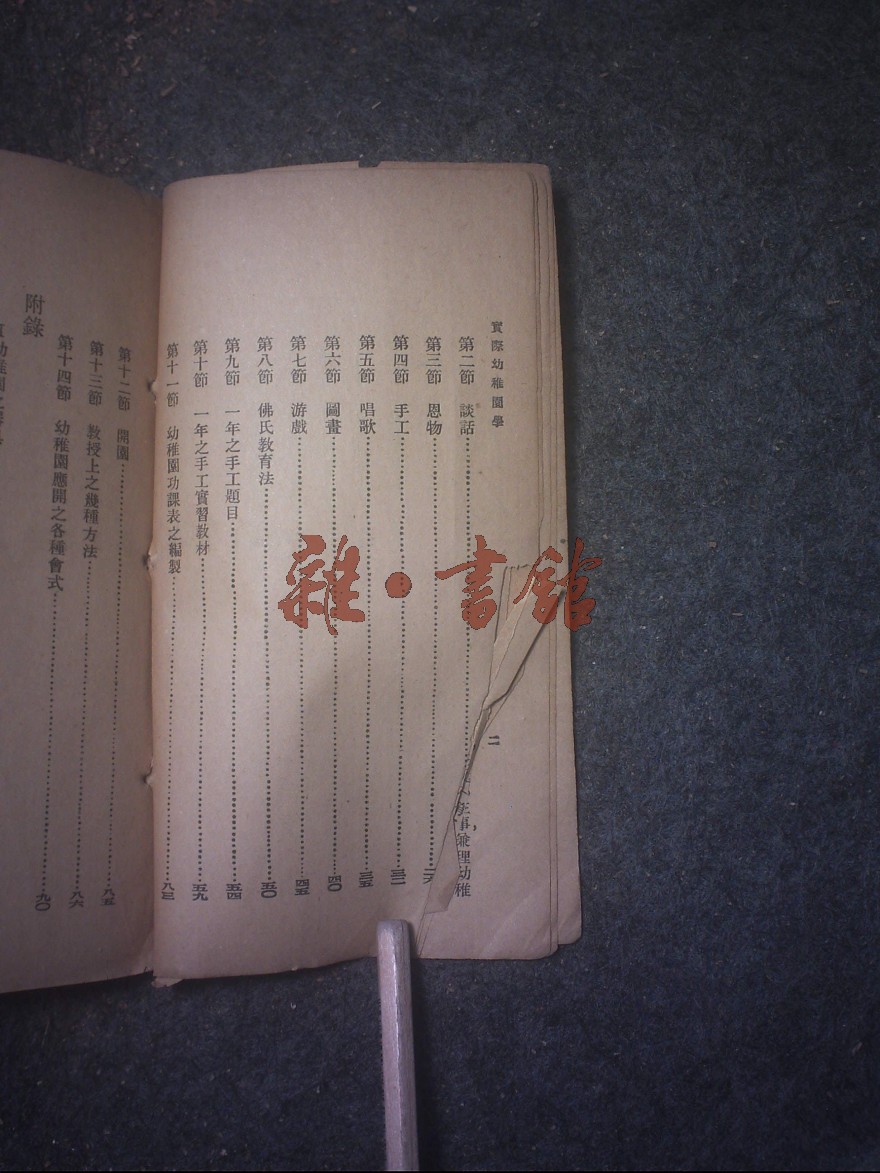 實際幼稚園學
二
第二節 談話
第三節 恩物……二六
第四節 手工……三二
第五節 唱歌……三五
第六節 圖畫……四〇
第七節 游戲……四五
第八節 佛氏教育法……五〇
第九節 一年之手工題目……五四
第十節 一年之手工實習教材……五九
第十一節 幼稚園功課表之編製……八三
第十二節 開園……八五
第十三節 教授上之幾種方法……八六
第十四節 幼稚園應開之各種會式……九〇
附錄
事兼理幼稚
雜·書館